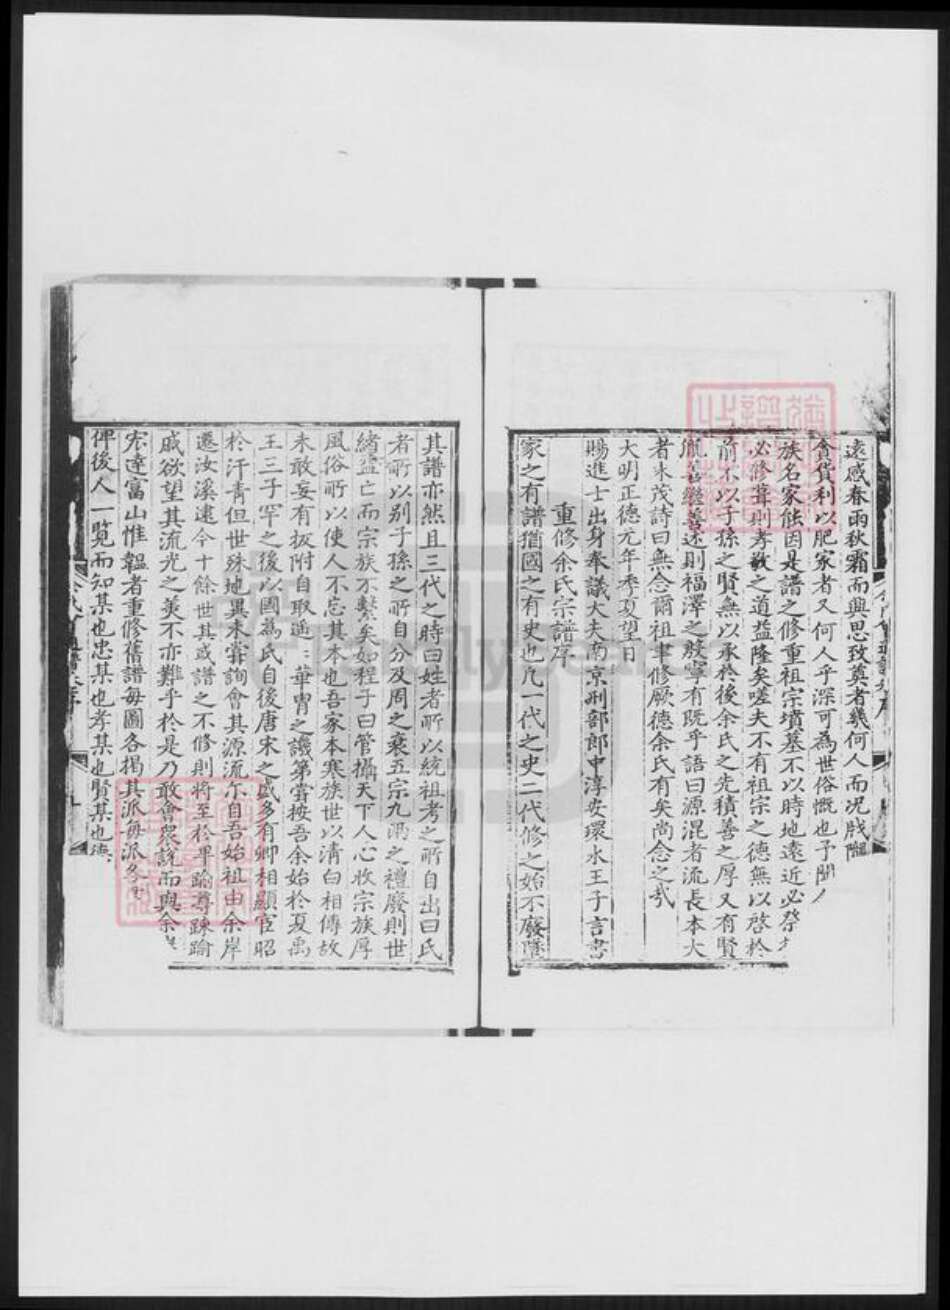 遠感春雨秋霜而興思致奠者幾何人而况戕
貪貨利以肥家者又何人乎深可為世俗慨也予聞
族名家能因是譜之修重祖宗墳墓不以時地遠近必祭
必修葺則孝敬之道益隆矣嗟夫不有祖宗之德無以啓於
前不以子孫之賢無以承於後余氏之先積善之厚又有賢
胤善繼善述則福澤之殷寧有既乎語曰源混者流長本大
者末茂詩曰無念爾祖聿修厥德余氏有矣尚念之哉
大明正德元年季夏望日
賜進士出身奉議大夫南京刑部郎中淳安環水王子言書
重修余氏宗譜序
家之有譜猶國之有史也凡一代之史二代修之始不廢墜
其譜亦然且三代之時曰姓者所以統祖考之所自出曰氏
者所以别子孫之所自分及周之衰五宗九兩之禮廢則世
緒益亡而宗族不繫矣如程子曰管攝天下人心收宗族厚
風俗所以使人不忘其本也吾家本寒族世以清白相傳故
未敢妄有扳附自取遥遥華胄之譏第嘗按吾余始於夏禹
王三子罕之後以國為氏自後唐宋之盛多有卿相顯宦昭
於汗青但世殊地異未嘗詢會其源流尔自吾始祖由余岸
遷汝溪逮今十餘世其或譜之不修則将至於卑踰尊踈踰
戚欲望其流光之羙不亦難乎於是乃敢會衆説而與余
宏達富山惟韞者重修舊譜每圖各揭其派每派各
俾後人一覧而知某也忠某也孝某也賢某也德